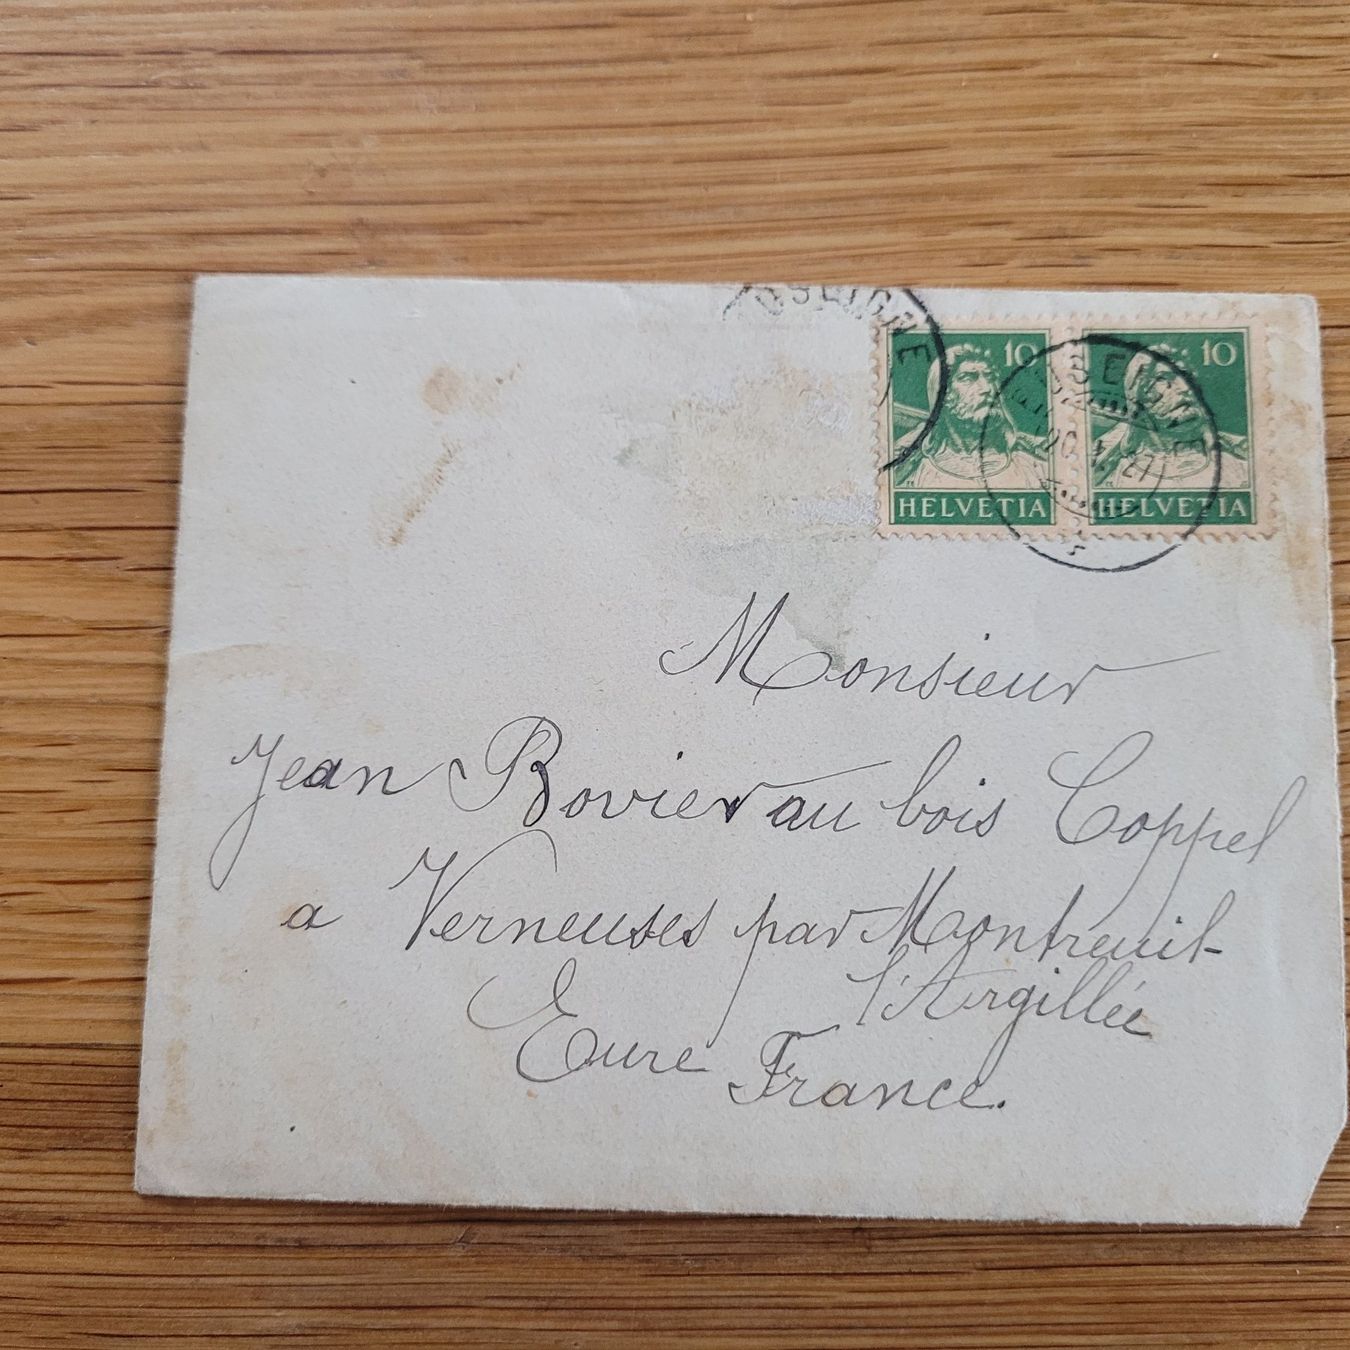 USEIGNE
10
10
USEIGNE
HELVETIA
HELVETIA
Monsieur
Jean Bovier au bois Coppel
a Verneuses par Montreuil-
l'Argillée
Eure France.